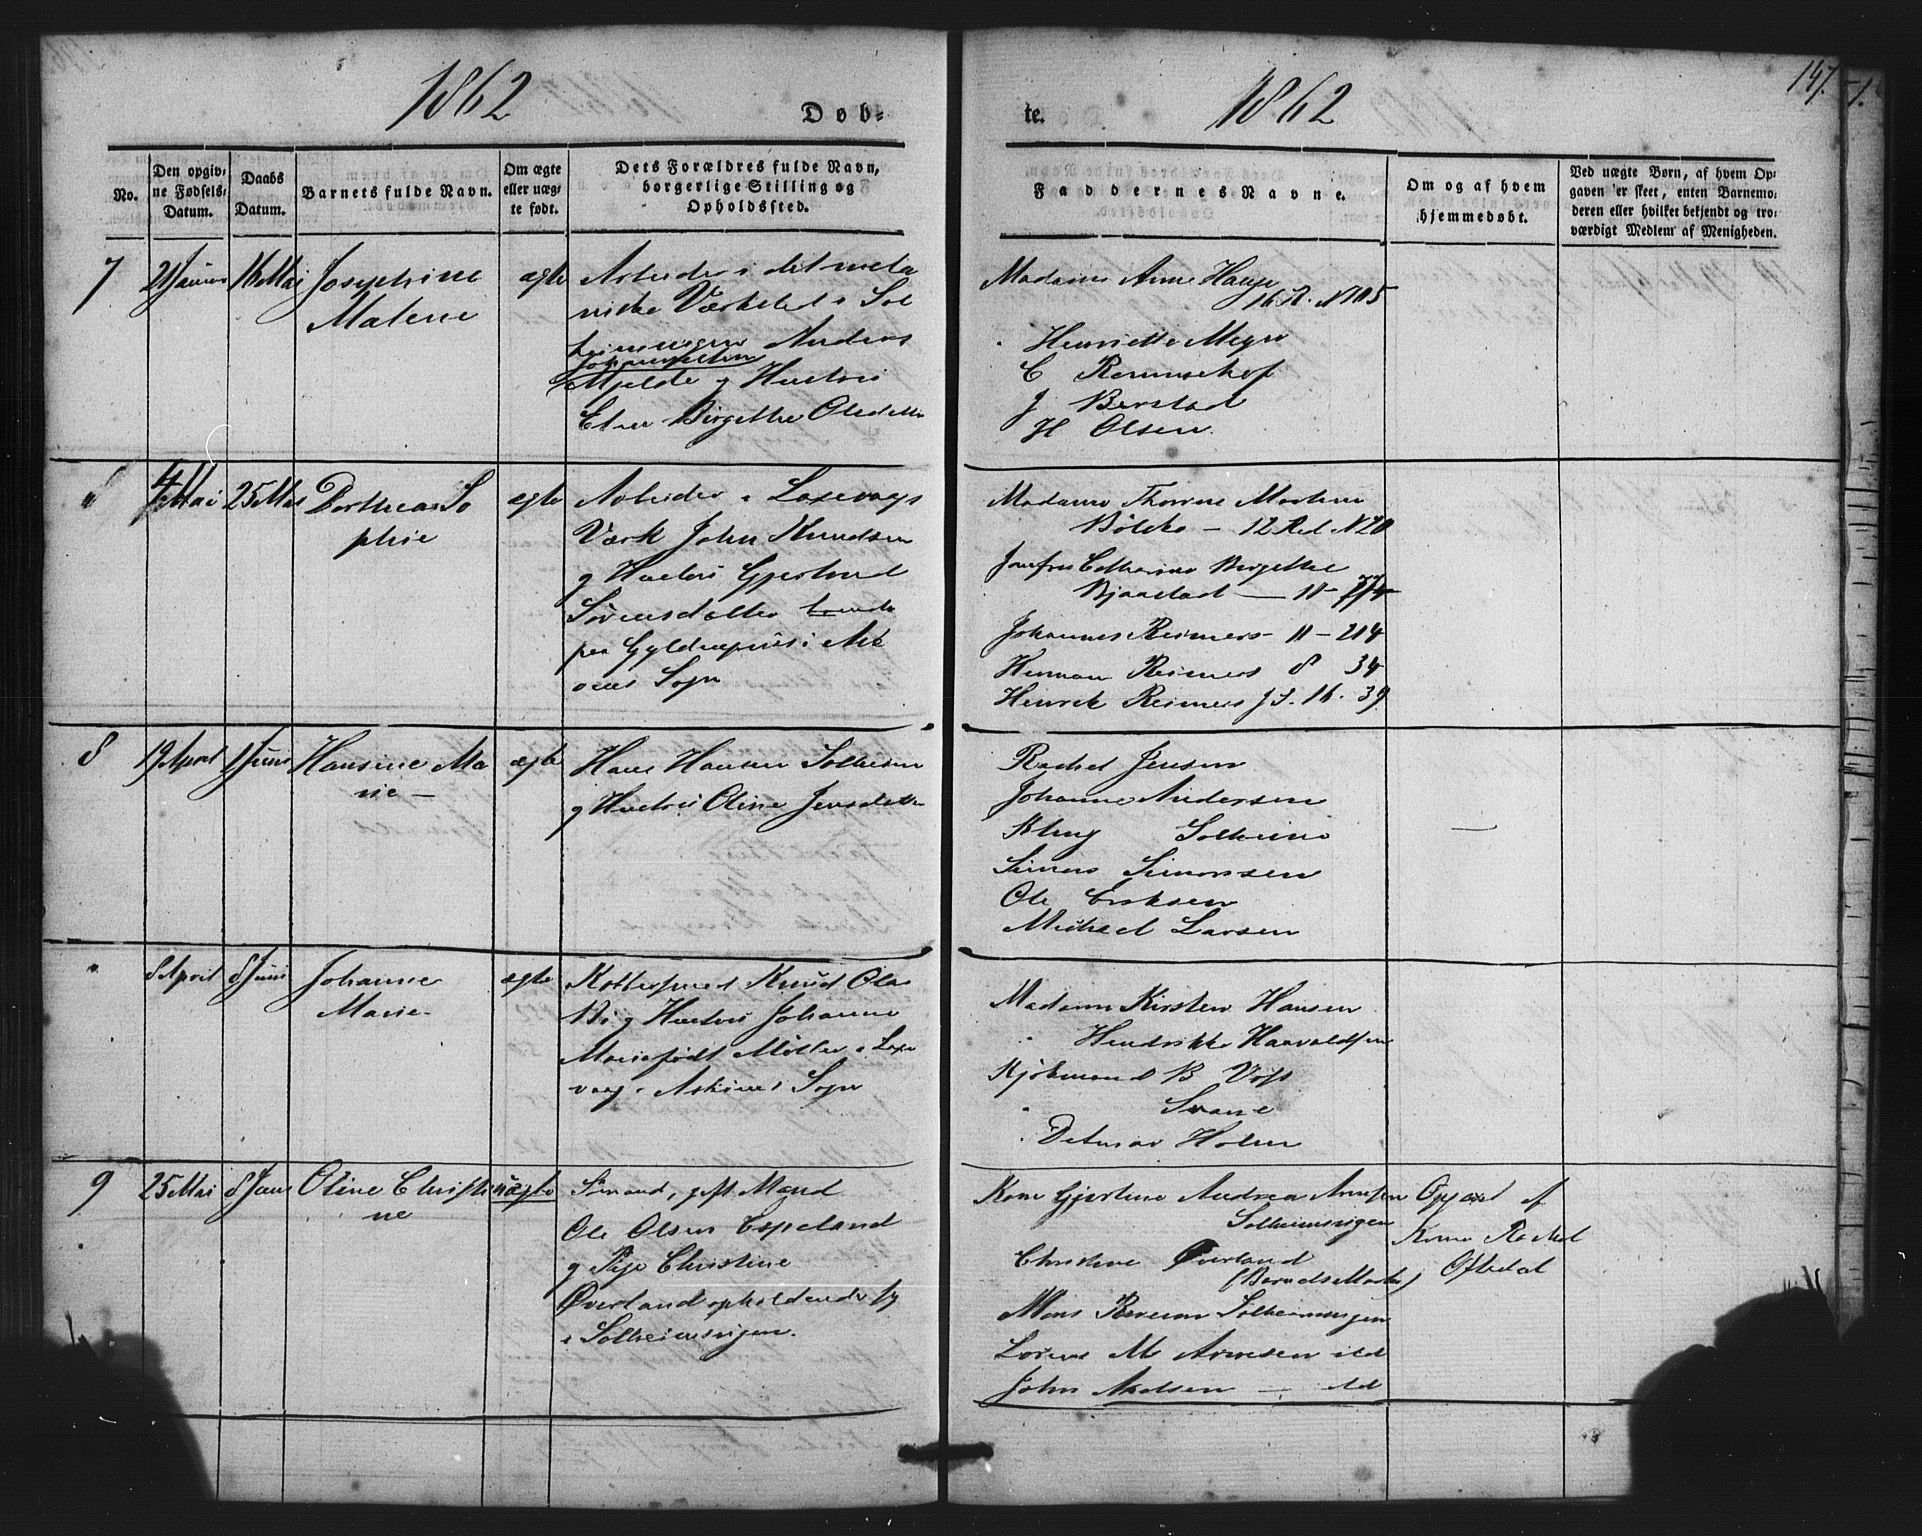 1862
Døb-
No.
Den opgiv-
ne Fødsels-
Datum.
Daabs
Datum.
Barnets fulde Navn.
Om ægte
eller uæg-
te født.
Dets Forældres fulde Navn,
borgerlige Stilling og
Opholdssted.
7
16 Mai
Josephine
Malene
ægte
Arbeider i det meka
niske Værksted i Sol
heimsvigen Anders
Johannessen
Mjelde og Hustru
Birgithe Olsdatter
"
4 Mai
25 Mai
Dorthea So
phie
ægte
Arbeider i Laxevaags
Værk John Knudsen
og Hustru Gjertrud
Sørensdatter
paa Gyldenpriis i Ask
øens Sogn
8
19 April
1 Juni
Hansine Ma
rie -
ægte
Hans Hansen Solheim
og Hustru Oline Jensdatter
"
8 April
8 Juni
Johanne
Marie
ægte
Knud Olai
Bi og Hustru Johanne
Marie født Møller i Laxe
vaag i Askøens Sogn
9
25 Mai
8 Juni
Oline Christi
ne
uægte
gift Mand
Ole Olsen Espeland
og Pige Christine
Øverland opholdende sig
i Solheimsvigen.
te.
1862
147.
Faddernes Navne.
Om og af hvem
hjemmedøbt.
Ved uægte Børn, af hvem Op-
gaven er skeet, enten Barnemo-
deren eller hvilket bekjendt og tro-
værdigt Medlem af Menigheden.
Madame Anne Hauge
16 R. N 105
Henriette Meyer
C
J Berstad
H Olsen.
Madame Thorine Marthine
12 Rd N 20
Jomfru Cathrine Birgithe
Bjaastad — 11 -
Johannes Reimers - 11 - 214
Herman Reimers 8 34
Henrik Reimers 16. 39
Rachel Jensen
Johanne Andersen
Solheim
Simon Simonsen
Ole Eriksen
Michael Larsen
—
Madam Kirsten Hansen
" Hendrikke Haavaldsen
Kjøbmand B Vogt
" Svane
" Detmar Holm
Kone Gjertine Andrea Arnesen
Solheimsvigen
Christine Øverland
(Barnets Moder)
Mons Solheimsvigen
Lorens M Arnesen ibd
John Axelsen — ibd
Opgivet af
Kone Rachel
Oftedal